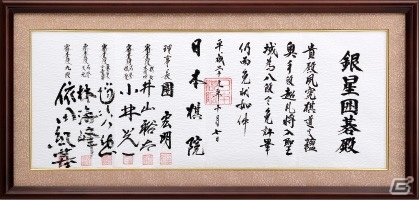 銀星囲碁殿
貴殿夙究棋道之蘊
奥手段超凡将入聖
域為八段令免許畢
仍而免状如件
平成 年十月七日
日本棋院
理事長 團宏明
井山裕太
小林光一
林海峰
依田紀基
Gamer